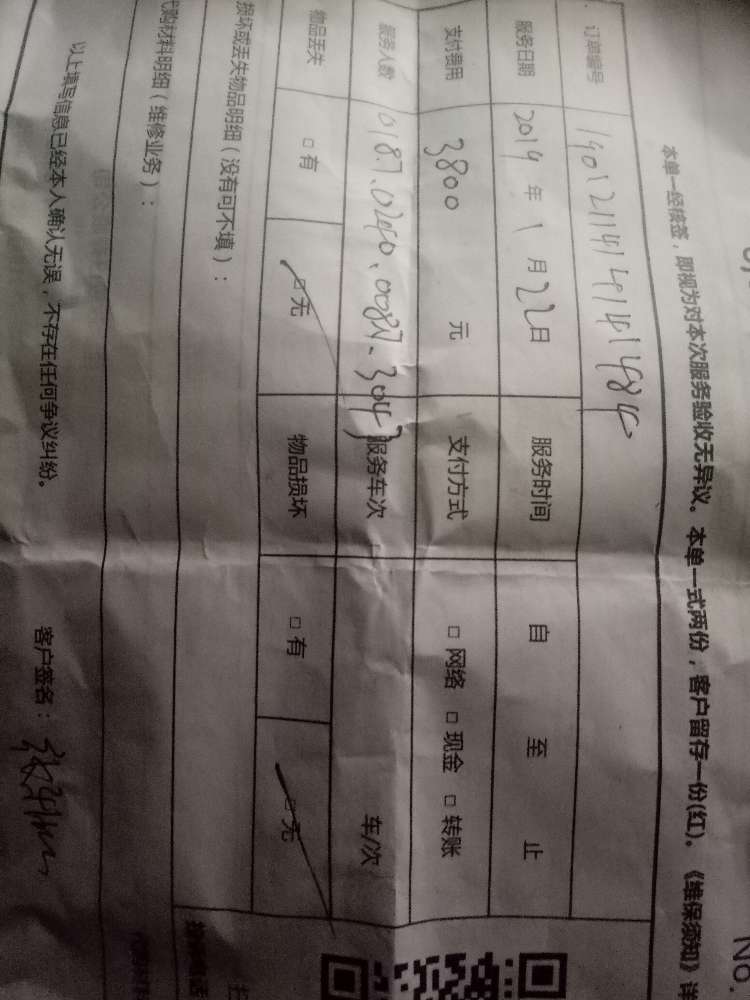 No.
本单一经核签，即视为对本次服务验收无异议。本单一式两份，客户留存一份(红)。《维保须知》详
订单编号
服务日期 2019 年 1 月 22 日 服务时间 自 至 止
支付费用 3800 元 支付方式 □ 网络 □ 现金 □ 转账
服务人数 0187.0240.0087.3043 服务车次 车/次
物品丢失 □ 有 □ 无 物品损坏 □ 有 □ 无
损坏或丢失物品明细（没有可不填）：
购材料明细（维修业务）：
以上填写信息已经本人确认无误，不存在任何争议纠纷。
客户签名：